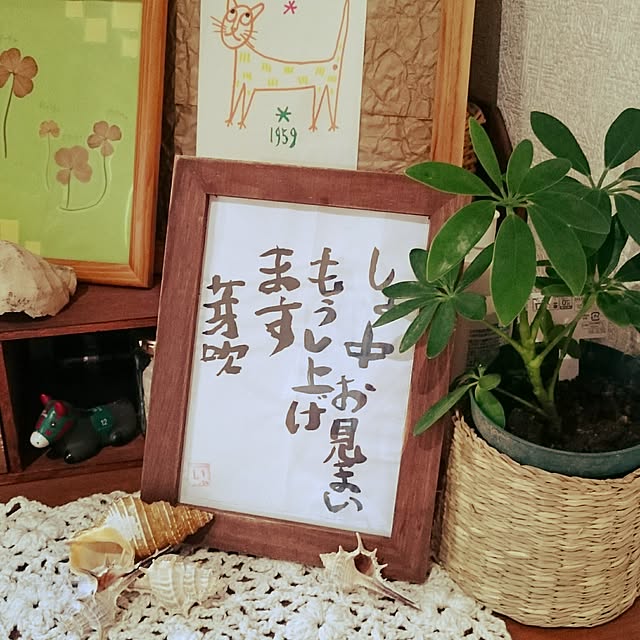 1959
しょ中お見まい
もうし上げ
ます
芽吹
12